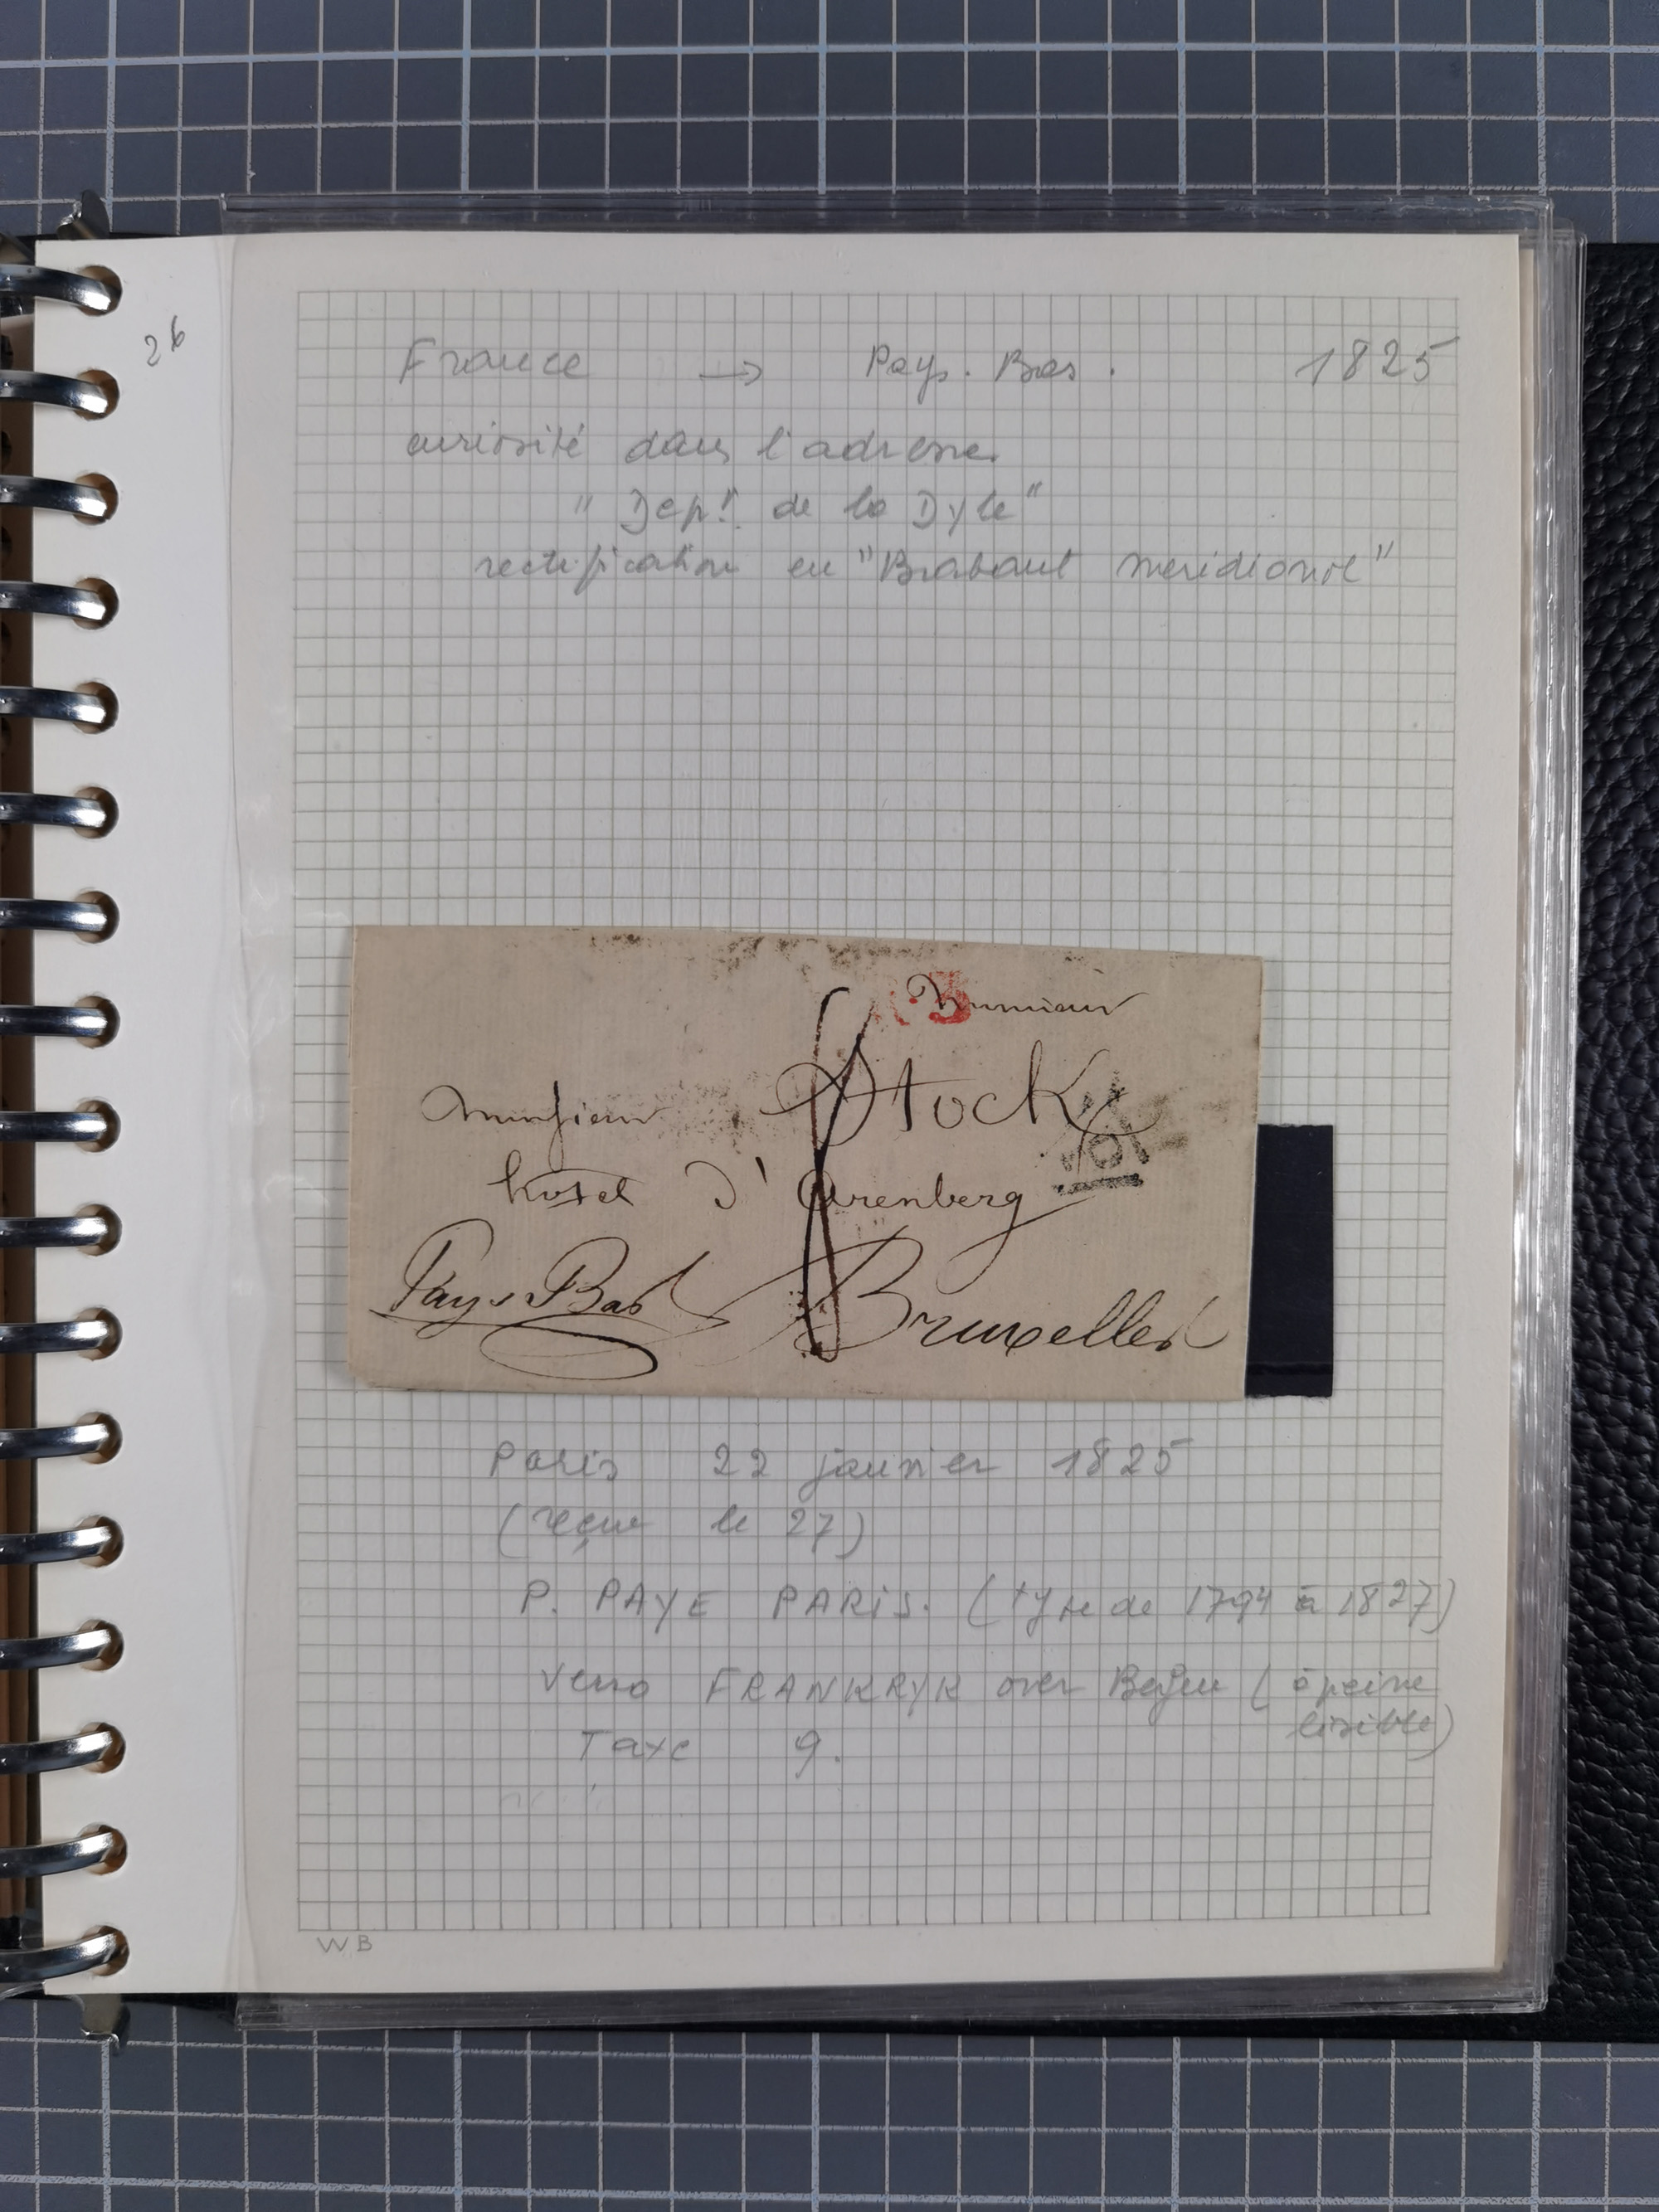 26
France → Pays. Bas. 1825
curiosité dans l'adresse
" Dept. de la Dyle"
rectification en "Brabant meridional"
3
Monsieur
Monsieur Stock
hotel D'Arenberg
Pays Bas Bruxelles
Paris 22 janvier 1825
(reçue le 27)
P. PAYE PARIS. (type de 1794 à 1827)
Verso FRANKRYK over (à peine
lisible)
Taxe 9.
WB